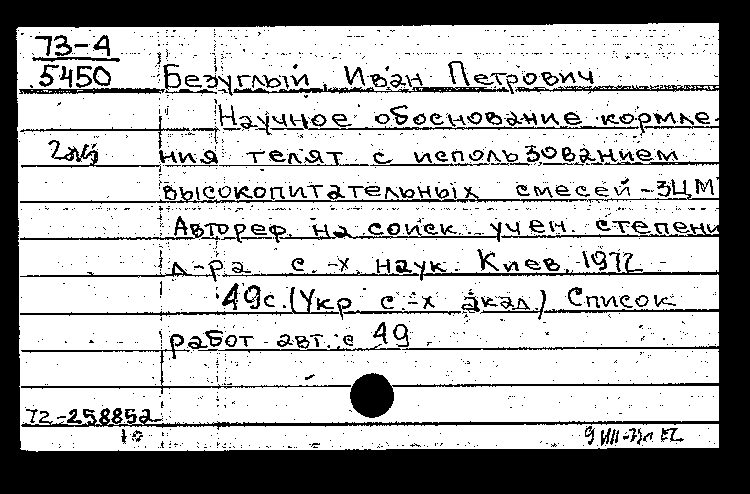 73-4
5450
Безуглый, Иван Петрович
Научное обоснование кормле-
ния телят с использованием
высокопитательных смесей-ЗЦМ
Автореф. на соиск. учен. степени
д-ра с.-х. наук. Киев, 1972
49с. (Укр с.-х акад.) Список
работ авт. с 49
72-258852
10